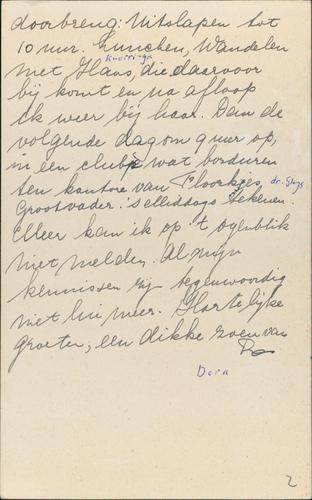 doorbreng: Uitslapen tot
10 uur. Lunchen, Wandelen
met Hans, die daarvoor
Knottinga
bij komt en na afloop
ik weer bij haar. Dan de
volgende dag om 9 uur op,
in een clubje wat borduren
ten kantore van Floortjes
Grootvader. 's Middags tekenen.
Meer kan ik op 't ogenblik
niet melden. Al mijn
kennissen zijn tegenwoordig
niet hier meer. Hartelijke
groeten, een dikke zoen van
Do
Dora
2